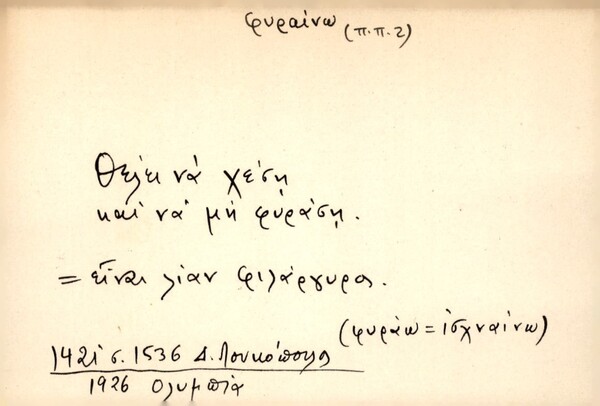 φυραίνω (π.π. 2)
Θέλει νά χέση
καί νά μή φυράση.
= εἶναι λίαν φιλάργυρος.
(φυράω = ἰσχναίνω)
1421 σ. 1536 Δ. Λουκόπουλος
1926 Ολυμπία